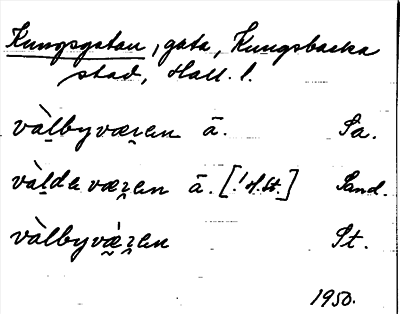 Kungsgatan, gata, Kungsbacka
stad, Hall. l.
vàlbyværen ā. Sa.
vàldeværen ā. [! H.St.] Sand.
vàlbyvæ̀ren St.
1950.